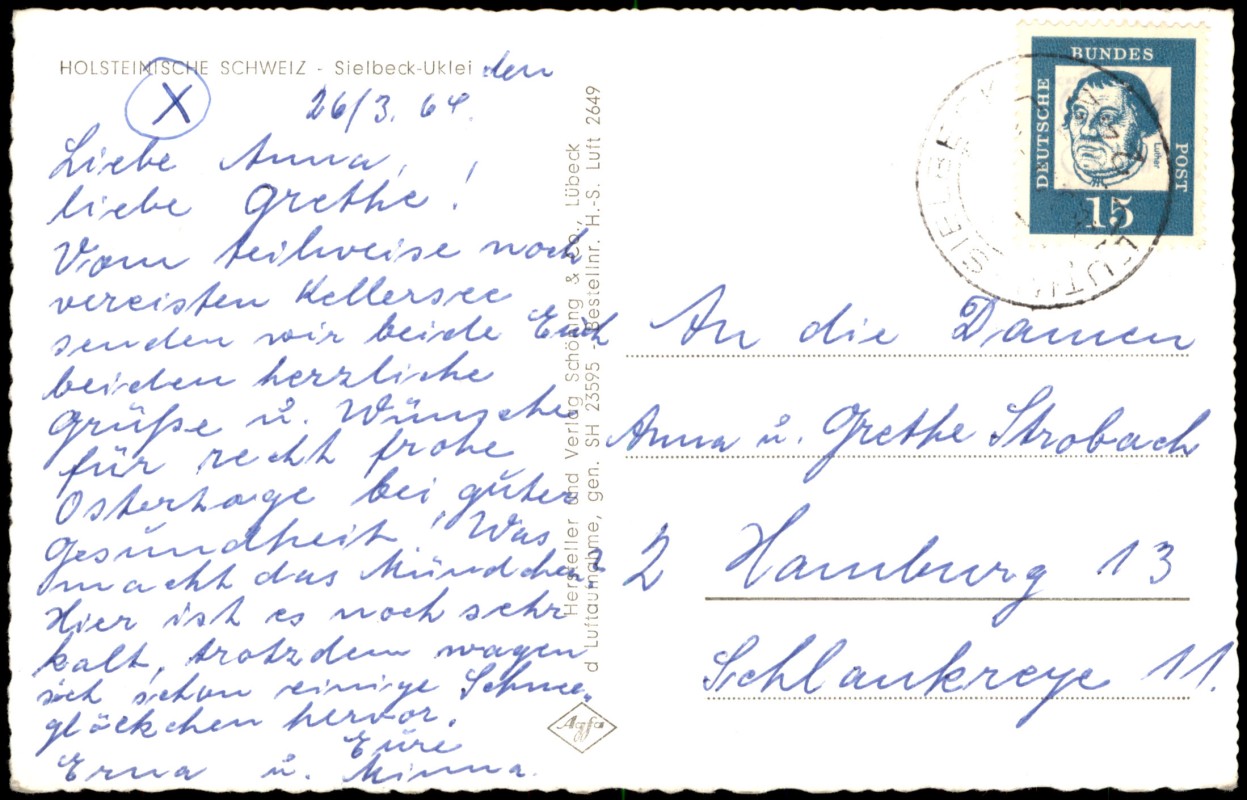 HOLSTEINISCHE SCHWEIZ - Sielbeck-Uklei den
X
26/3. 64.
Liebe Anna,
liebe Grethe!
Vom teilweise noch
vereisten Kellersee
senden wir beide Euch
beiden herzliche
Grüße u. Wünsche
für recht frohe
Ostertage bei guter
Gesundheit! Was
macht das Mündchen?
Hier ist es noch sehr
kalt, trotzdem wagen
sich schon einige Schnee-
glöckchen hervor.
Eure
Erna u. Minna.
Hersteller und Verlag Schöning & Co., Lübeck
d Luftaufnahme, gen. SH 23595 - Bestellnr. H.-S. Luft 2649
Agfa
DEUTSCHE
BUNDES
POST
Luther
15
SIELBECK
EUTIN
An die Damen
Anna u. Grethe Strobach
2 Hamburg 13
Schlankreye 11.